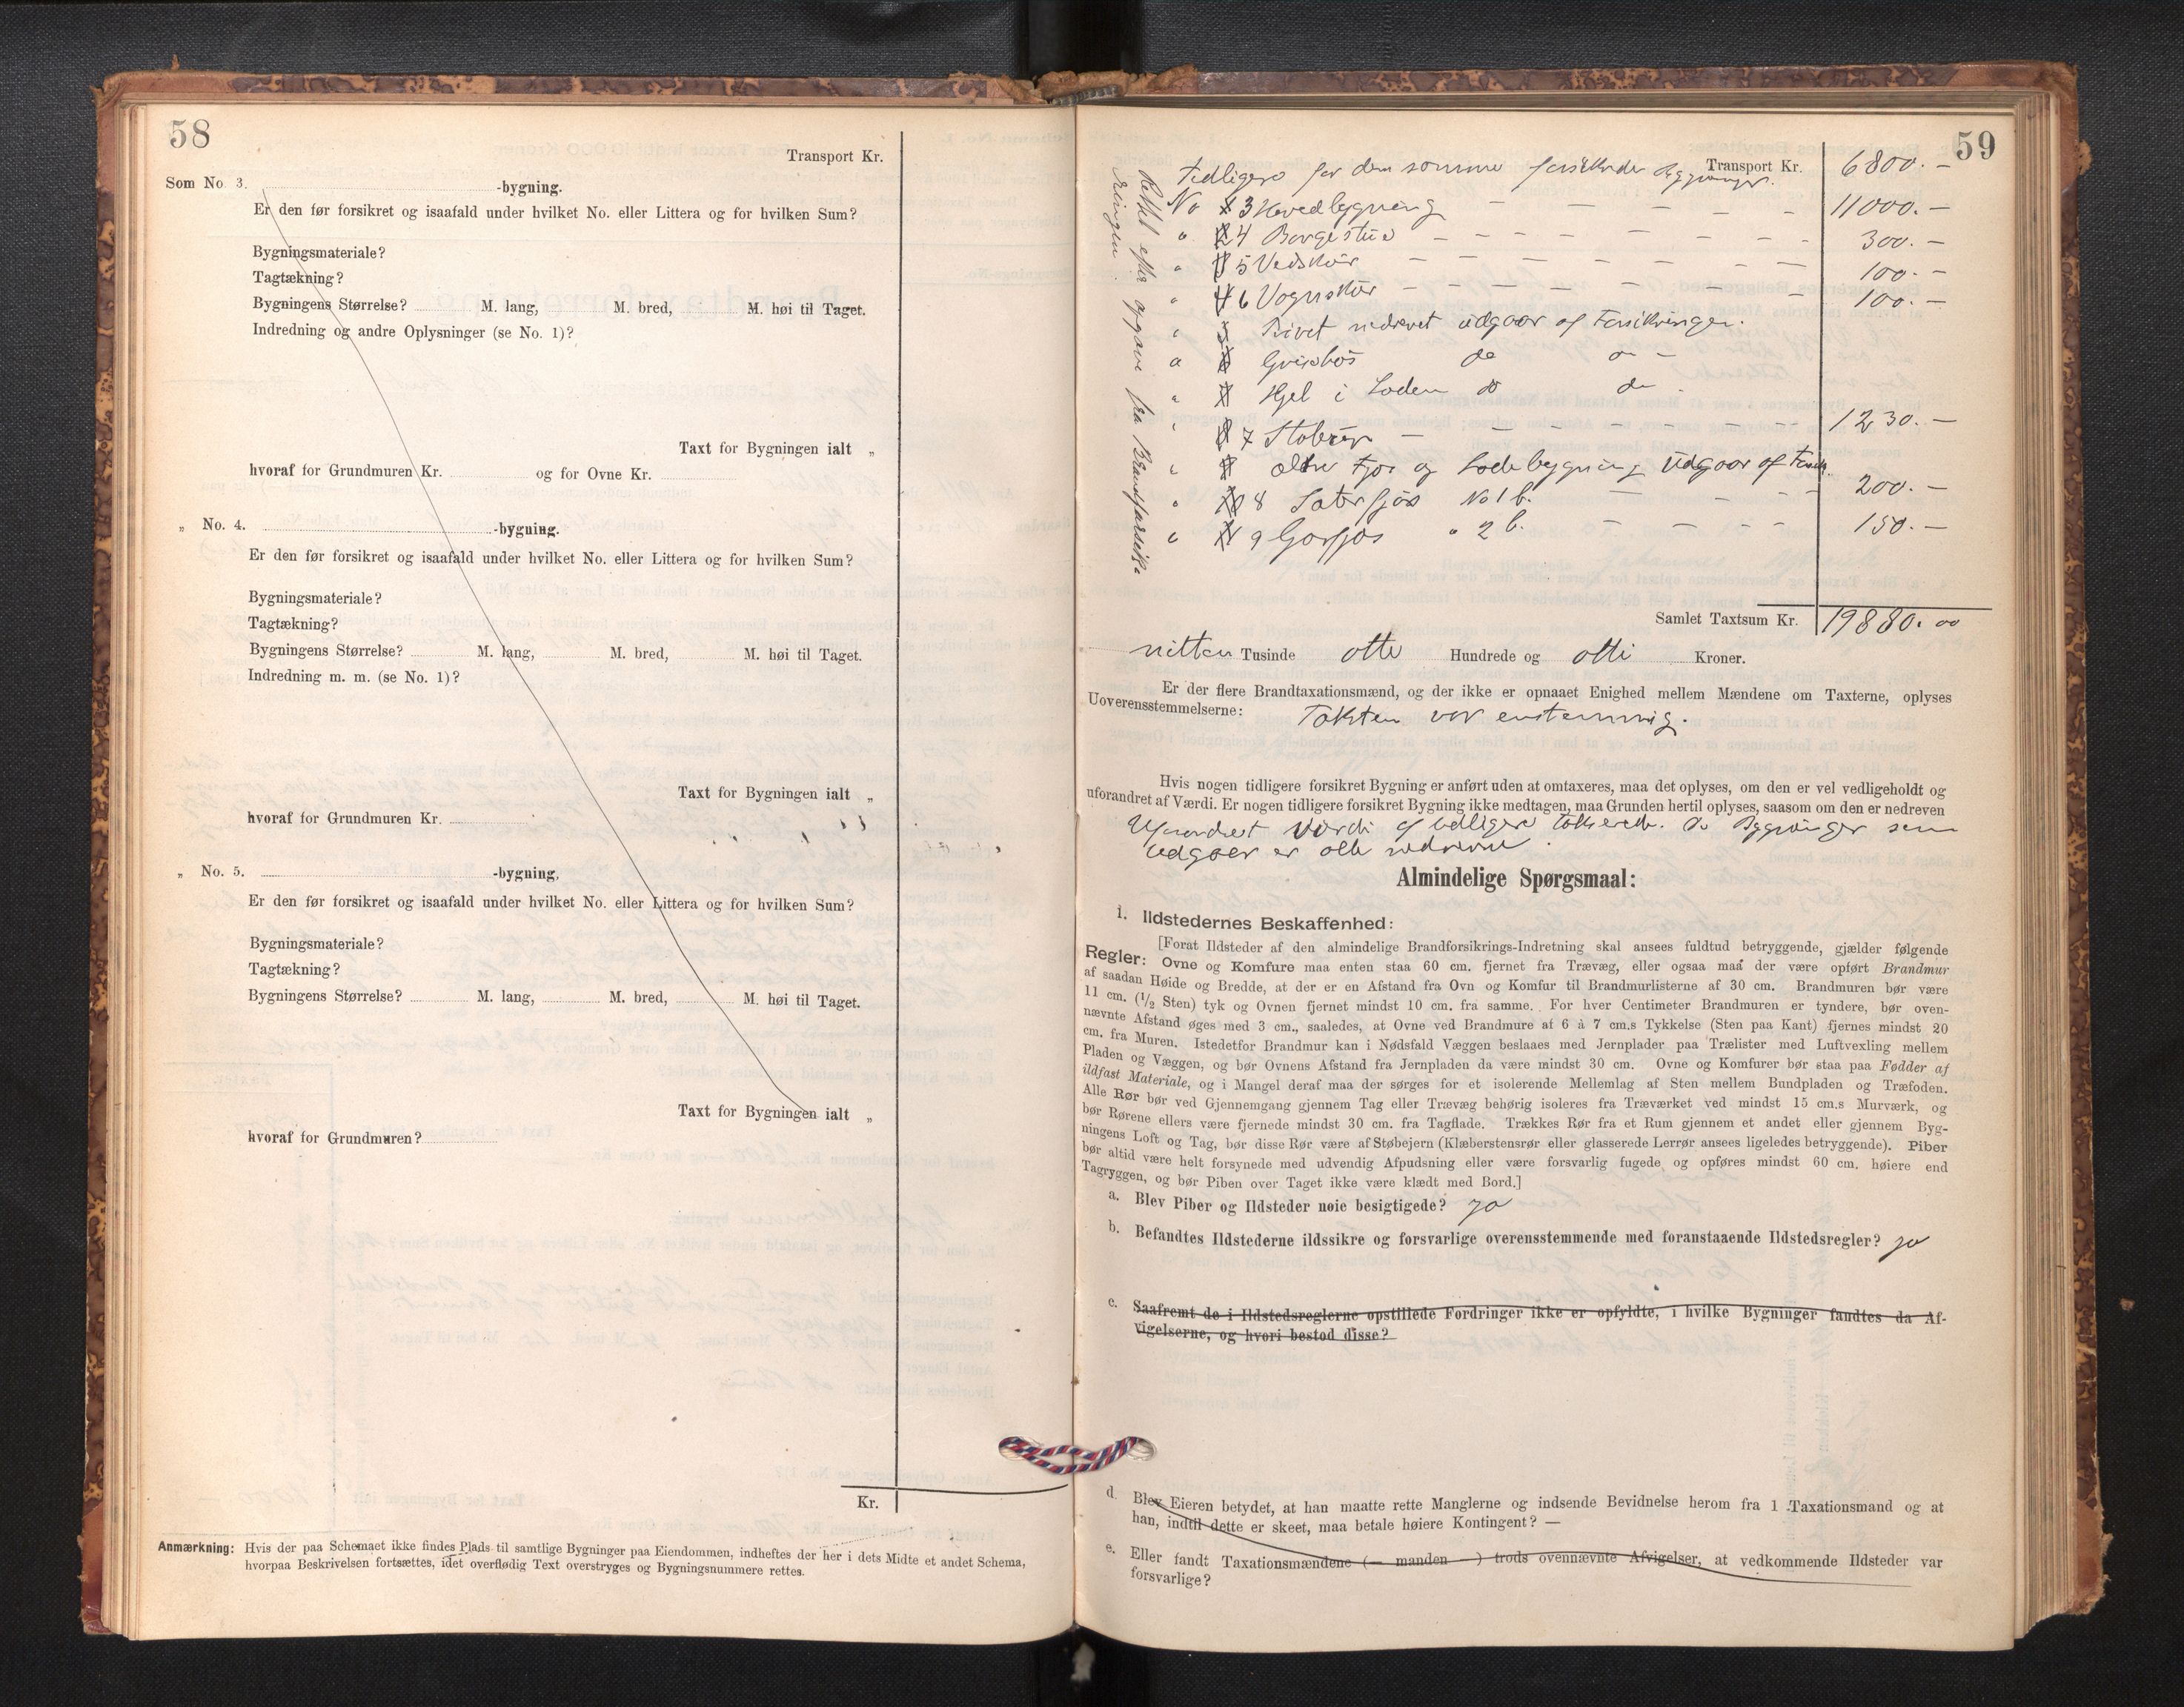 58
Transport Kr.
Som No 3. -bygning.
Er den før forsikret og isaafald under hvilket No. eller Littera og for hvilken Sum?
Bygningsmateriale?
Tagtækning?
Bygningens Størrelse? M. lang, M. bred, M. høi til Taget.
Indredning og andre Oplysninger (se No. 1)?
Taxt for Bygningen ialt „
hvoraf for Grundmuren Kr. og for Ovne Kr.
„ No. 4. -bygning.
Er den før forsikret og isaafald under hvilket No. eller Littera og for hvilken Sum?
Bygningsmateriale?
Tagtækning?
Bygningens Størrelse? M. lang, M. bred, M. høi til Taget.
Indredning m. m. (se No. 1)?
Taxt for Bygningen ialt „
hvoraf for Grundmuren Kr.
„ No. 5. -bygning,
Er den før forsikret og isaafald under hvilket No. eller Littera og for hvilken Sum?
Bygningsmateriale?
Tagtækning?
Bygningens Størrelse? M. lang, M. bred, M. høi til Taget.
Taxt for Bygningen ialt „
hvoraf for Grundmuren?
Kr.
Anmærkning: Hvis der paa Schemaet ikke findes Plads til samtlige Bygninger paa Eiendommen, indheftes der her i dets Midte et andet Schema,
hvorpaa Beskrivelsen fortsættes, idet overflødig Text overstryges og Bygningsnummere rettes.
59
Transport Kr. 6800.—
Tidligere for den samme forsikrede Bygninger.
No 3 Hovedbygning — — — — 11000.—
" 4 Borgestue — — — — 300.—
" 5 Vedskur — — — — 100.—
" 6 Vognskur — — — — 100.—
" 5 Privet nedrevet udgaar af Forsikringen.
" Grisehus do do —
" Hjel i Loden do do
" 7 Stabur — — — — 1230.—
" ældre Fjøs og Lodebygning udgaar af Forsik.
" 8 Sæterfjøs No 1 b. — — — 200.—
" 9 Gorfjøs " 2 b. — — — 150.—
Rettet efter opgave fra Brandforsik-
ringen.
Samlet Taxtsum Kr. 19880.00
nitten Tusinde otte Hundrede og otti Kroner.
Er der flere Brandtaxationsmænd, og der ikke er opnaaet Enighed mellem Mændene om Taxterne, oplyses
Uoverensstemmelserne: Taksten var enstemmig.
Hvis nogen tidligere forsikret Bygning er anført uden at omtaxeres, maa det oplyses, om den er vel vedligeholdt og
uforandret af Værdi. Er nogen tidligere forsikret Bygning ikke medtagen, maa Grunden hertil oplyses, saasom om den er nedreven
Uforandret Værdi af tidligere takserede. De Bygninger som
udgaar er alle nedrevne.
Almindelige Spørgsmaal:
1. Ildstedernes Beskaffenhed:
[Forat Ildsteder af den almindelige Brandforsikrings-Indretning skal ansees fuldtud betryggende, gjælder følgende
Regler: Ovne og Komfure maa enten staa 60 cm. fjernet fra Trævæg, eller ogsaa maa der være opført Brandmur
af saadan Høide og Bredde, at der er en Afstand fra Ovn og Komfur til Brandmurlisterne af 30 cm. Brandmuren bør være
11 cm. (1/2 Sten) tyk og Ovnen fjernet mindst 10 cm. fra samme. For hver Centimeter Brandmuren er tyndere, bør oven-
nævnte Afstand øges med 3 cm., saaledes, at Ovne ved Brandmure af 6 à 7 cm.s Tykkelse (Sten paa Kant) fjernes mindst 20
cm. fra Muren. Istedetfor Brandmur kan i Nødsfald Væggen beslaaes med Jernplader paa Trælister med Luftvexling mellem
Pladen og Væggen, og bør Ovnens Afstand fra Jernpladen da være mindst 30 cm. Ovne og Komfurer bør staa paa Fødder af
ildfast Materiale, og i Mangel deraf maa der sørges for et isolerende Mellemlag af Sten mellem Bundpladen og Træfoden.
Alle Rør bør ved Gjennemgang gjennem Tag eller Trævæg behørig isoleres fra Træværket ved mindst 15 cm.s Murværk, og
bør Rørene ellers være fjernede mindst 30 cm. fra Tagflade. Trækkes Rør fra et Rum gjennem et andet eller gjennem Byg-
ningens Loft og Tag, bør disse Rør være af Støbejern (Klæberstensrør eller glasserede Lerrør ansees ligeledes betryggende). Piber
bør altid være helt forsynede med udvendig Afpudsning eller være forsvarlig fugede og opføres mindst 60 cm. høiere end
Tagryggen, og bør Piben over Taget ikke være klædt med Bord.]
a. Blev Piber og Ildsteder nøie besigtigede? ja
b. Befandtes Ildstederne ildssikre og forsvarlige overensstemmende med foranstaaende Ildstedsregler? ja
c. Saafremt de i Ildstedsreglerne opstillede Fordringer ikke er opfyldte, i hvilke Bygninger fandtes da Af-
vigelserne, og hvori bestod disse?
d. Blev Eieren betydet, at han maatte rette Manglerne og indsende Bevidnelse herom fra 1 Taxationsmand og at
han, indtil dette er skeet, maa betale høiere Kontingent? —
e. Eller fandt Taxationsmændene (— manden —) trods ovennævnte Afvigelser, at vedkommende Ildsteder var
forsvarlige?